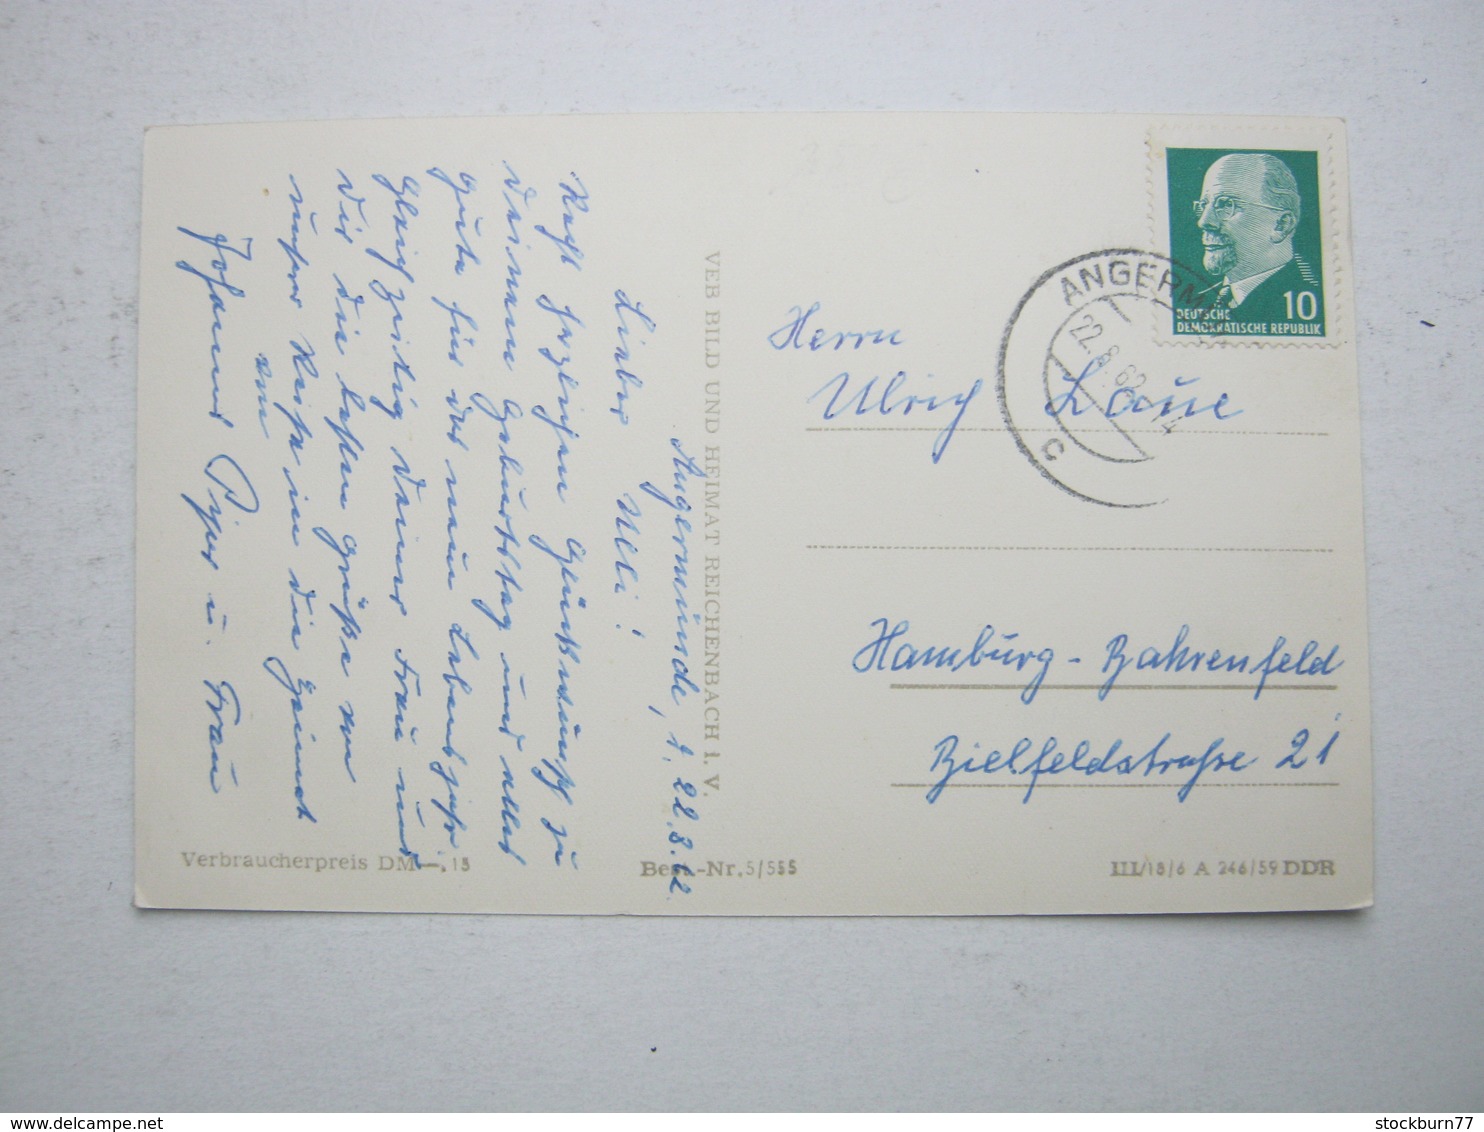 Angermünde, d. 22.8.62
Lieber Ulli!
Recht herzlichen Glückwunsch zu
deinem Geburtstag und alles
gute für das neue Lebensjahr
gleichzeitig deiner Frau und
dir die besten Grüße von
unser Reise in die Heimat
von
Johannes u. Frau
VEB BILD UND HEIMAT REICHENBACH i. V.
Verbraucherpreis DM —,15
Best.-Nr. 5/555
III/18/6 A 246/59 DDR
10
DEUTSCHE
DEMOKRATISCHE REPUBLIK
ANGERM
22.8.62
14
c
Herrn
Ulrich Laue
Hamburg-Bahrenfeld
Bielfeldstraße 21
stockburn77